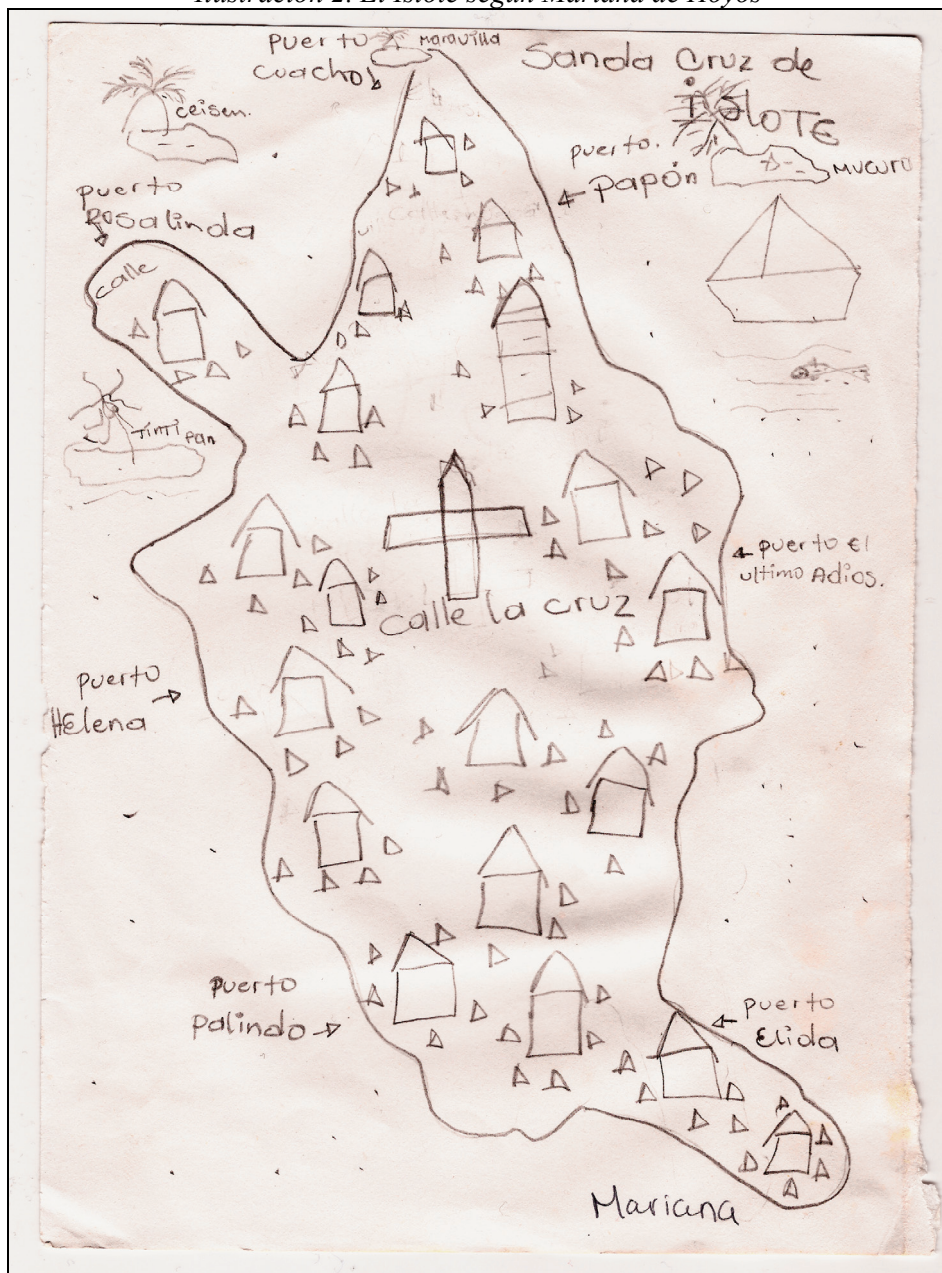 Ilustración 2. El Islote según Mariana de Hoyos
puerto
cuacho
Maravilla
Sanda Cruz de
iSLOTE
ceisen.
puerto.
papón
MUCURO
puerto
Rosalinda
calle
Tinti pan
puerto El
ultimo Adios.
calle la cruz
puerto
HElena
puerto
palindo
puerto
Elida
Mariana